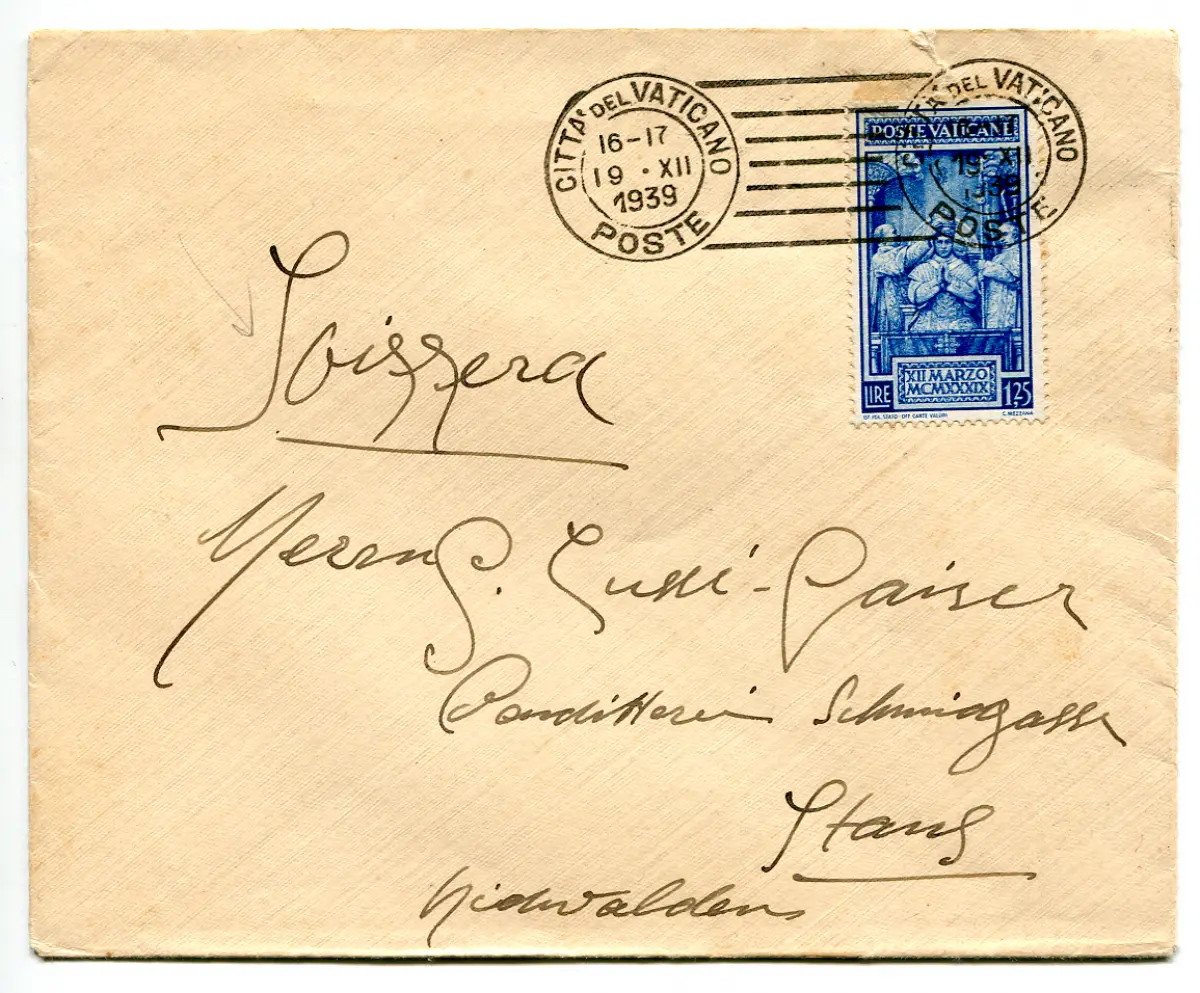 CITTA' DEL VATICANO
16-17
19 • XII
1939
POSTE
CITTA' DEL VATICANO
19 • XII
1939
POSTE
POSTE VATICANE
XII MARZO
MCMXXXIX
LIRE 1,25
IST. POL. STATO - OFF. CARTE VALORI C. MEZZANA
Svizzera
Herrn G. Lussi-Gaiser
Conditterei Schmidgasse
Stans
Nidwalden